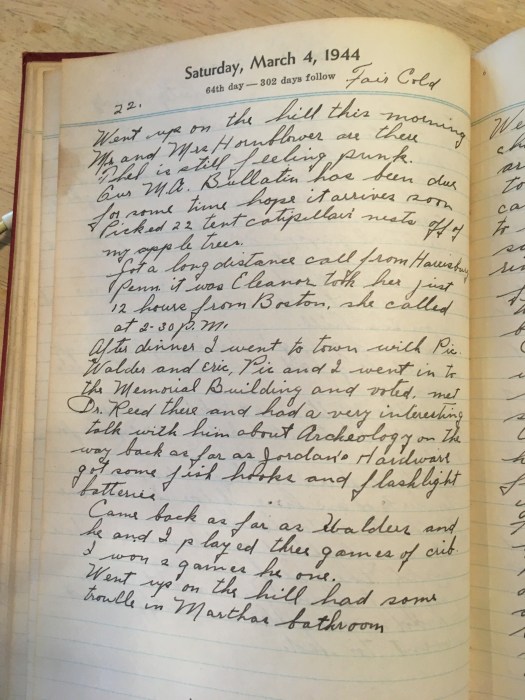 Saturday, March 4, 1944
64th day — 302 days follow
Fair Cold
22.
Went up on the hill this morning
Mr and Mrs Hornblower are there
Thel is still feeling punk.
Our M.A. Bullatin has been due
for some time hope it arrives soon
Picked 22 tent catipillair nests off of
my apple trees.
Got a long distance call from Harrisburg
Penn it was Eleanor took her just
12 hours from Boston, she called
at 2-30 P.M.
After dinner I went to town with Pic.
Walder and Eric, Pic and I went in to
the Memorial Building and voted. met
Dr. Reed there and had a very interesting
talk with him about Archeology on the
way back as far as Jordan's Hardware
got some fish hooks and flashlight
batteries
Came back as far as Walders and
he and I played three games of crib
I won 2 games he one.
Went up on the hill had some
trouble in Marthas bathroom